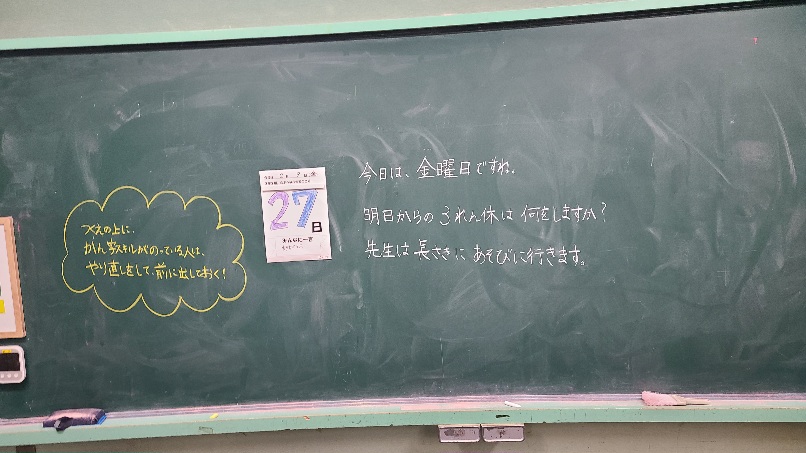 つくえの上に、
かん字スキルがのっている人は、
やり直しをして、前に出しておく!
27
日
みんなに一言
今日は、金曜日ですね。
明日からの3れん休は何をしますか?
先生は長さきにあそびに行きます。